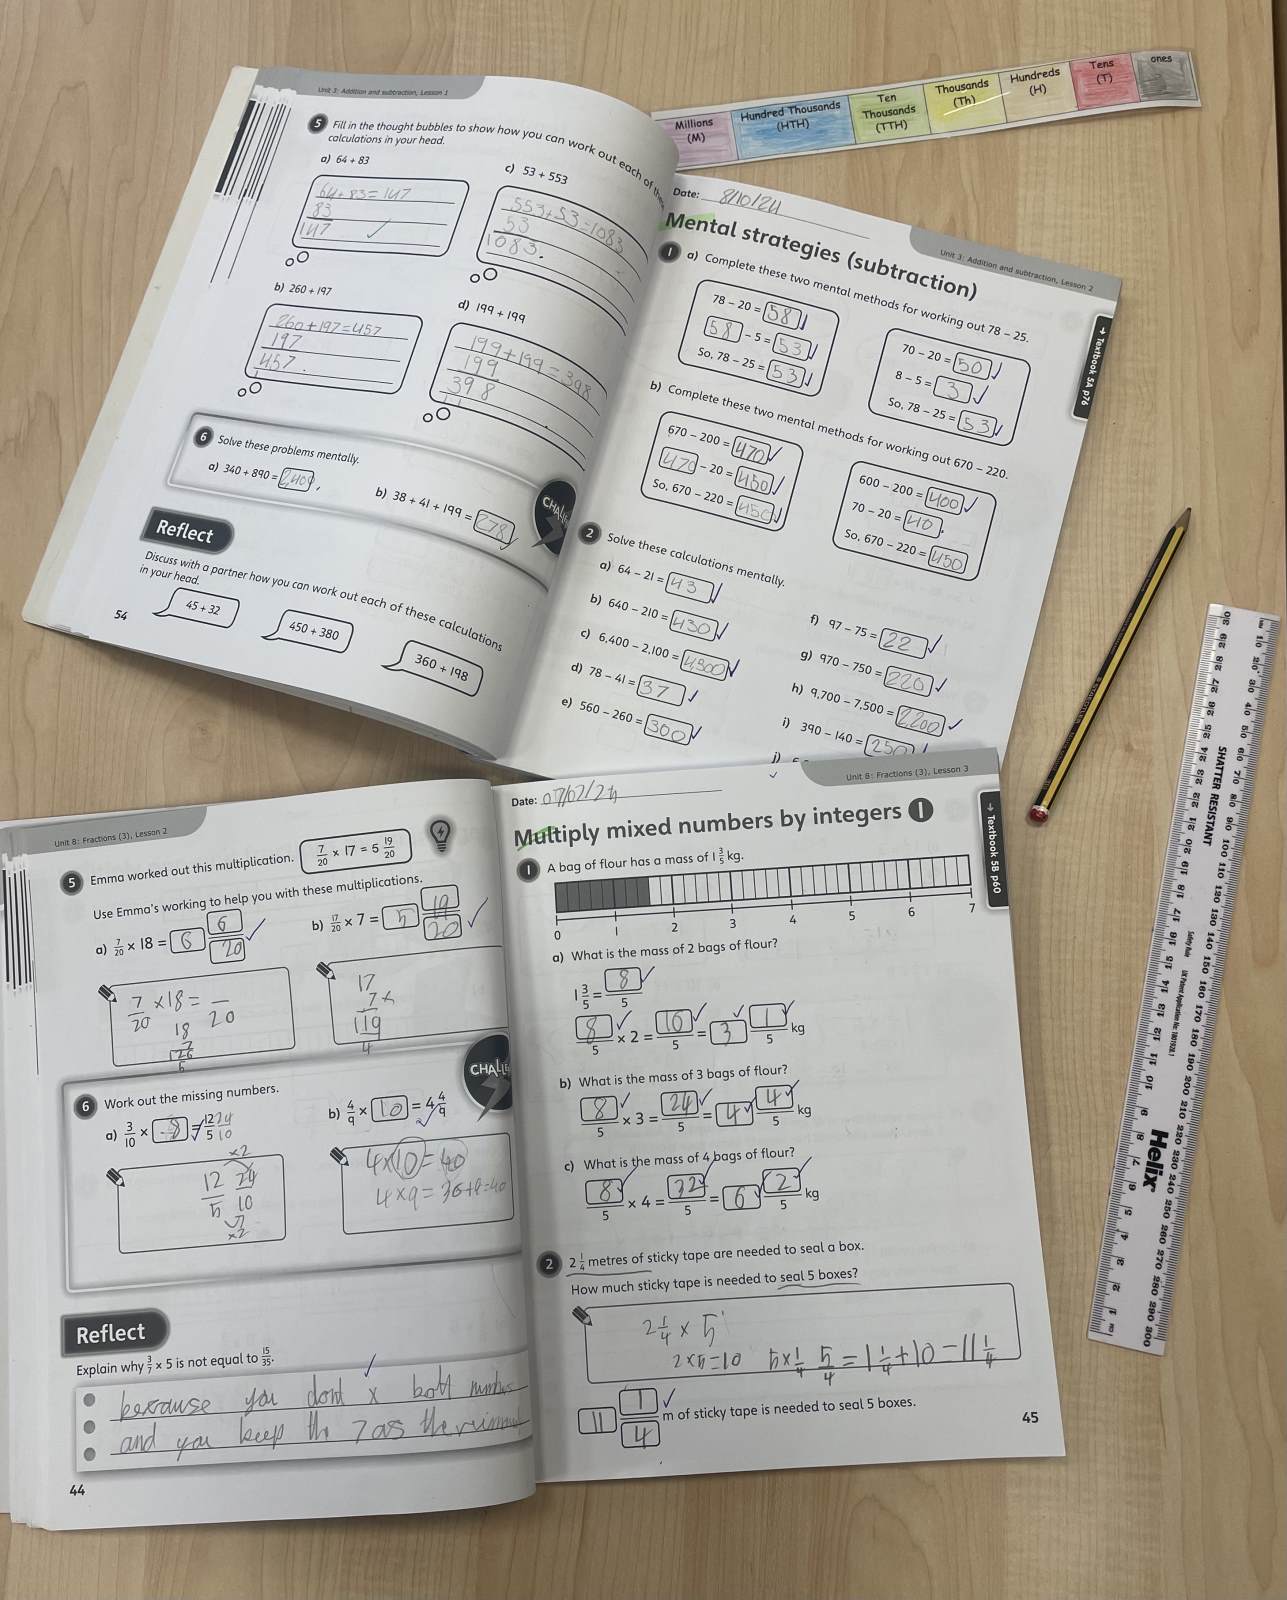 Millions (M)
Hundred Thousands (HTH)
Ten Thousands (TTH)
Thousands (Th)
Hundreds (H)
Tens (T)
ones
Unit 3: Addition and subtraction, Lesson 1
5 Fill in the thought bubbles to show how you can work out each of
calculations in your head.
a) 64 + 83
64 + 83 = 147
83
147
c) 53 + 553
553 + 53 = 1083
53
1083.
b) 260 + 197
260 + 197 = 457
197
457.
d) 199 + 199
199 + 199 = 398
199
398
6 Solve these problems mentally.
a) 340 + 890 =
b) 38 + 41 + 199 = 278
Reflect
Discuss with a partner how you can work out each of these calculations
in your head.
45 + 32
450 + 380
360 + 198
54
Date: 8/10/24
Unit 3: Addition and subtraction, Lesson 2
Mental strategies (subtraction)
→ Textbook 5A p76
1 a) Complete these two mental methods for working out 78 – 25.
78 – 20 = 58
58 – 5 = 53
So, 78 – 25 = 53
70 – 20 = 50
8 – 5 = 3
So, 78 – 25 = 53
b) Complete these two mental methods for working out 670 – 220.
670 – 200 = 470
470 – 20 = 450
So, 670 – 220 = 450
600 – 200 = 400
70 – 20 = 40
So, 670 – 220 = 450
2 Solve these calculations mentally.
a) 64 – 21 = 43
b) 640 – 210 = 430
c) 6,400 – 2,100 = 4300
d) 78 – 41 = 37
e) 560 – 260 = 300
f) 97 – 75 = 22
g) 970 – 750 = 220
h) 9,700 – 7,500 = 2200
i) 390 – 140 = 250
j)
Unit 8: Fractions (3), Lesson 2
5 Emma worked out this multiplication. 7/20 × 17 = 5 19/20
Use Emma's working to help you with these multiplications.
a) 7/20 × 18 = 6 6/20
b) 17/20 × 7 = 5 19/20
7/20 × 18 = /20
18
7
126
5
17
7 ×
119
4
CHALLE
6 Work out the missing numbers.
a) 3/10 × 8 = 12/5 24/10
b) 4/9 × 10 = 4 4/9
×2
12/5 24/10
×2
4 × 10 = 40
4 × 9 = 36 + 4 = 40
Reflect
Explain why 3/7 × 5 is not equal to 15/35.
because you dont x both
and you keep the 7 as the
44
Date:
Unit 8: Fractions (3), Lesson 3
Multiply mixed numbers by integers 1
→ Textbook 5B p60
1 A bag of flour has a mass of 1 3/5 kg.
0 1 2 3 4 5 6 7
a) What is the mass of 2 bags of flour?
1 3/5 = 8/5
8/5 × 2 = 16/5 = 3 1/5 kg
b) What is the mass of 3 bags of flour?
8/5 × 3 = 24/5 = 4 4/5 kg
c) What is the mass of 4 bags of flour?
8/5 × 4 = 32/5 = 6 2/5 kg
2 2 1/4 metres of sticky tape are needed to seal a box.
How much sticky tape is needed to seal 5 boxes?
2 1/4 × 5
2 × 5 = 10 5 × 1/4 5/4 = 1 1/4 + 10 = 11 1/4
11 1/4 m of sticky tape is needed to seal 5 boxes.
45
SHATTER RESISTANT
Helix
cm 1 2 3 4 5 6 7 8 9 10 11 12 13 14 15 16 17 18 19 20 21 22 23 24 25 26 27 28 29 30
mm 10 20 30 40 50 60 70 80 90 100 110 120 130 140 150 160 170 180 190 200 210 220 230 240 250 260 270 280 290 300